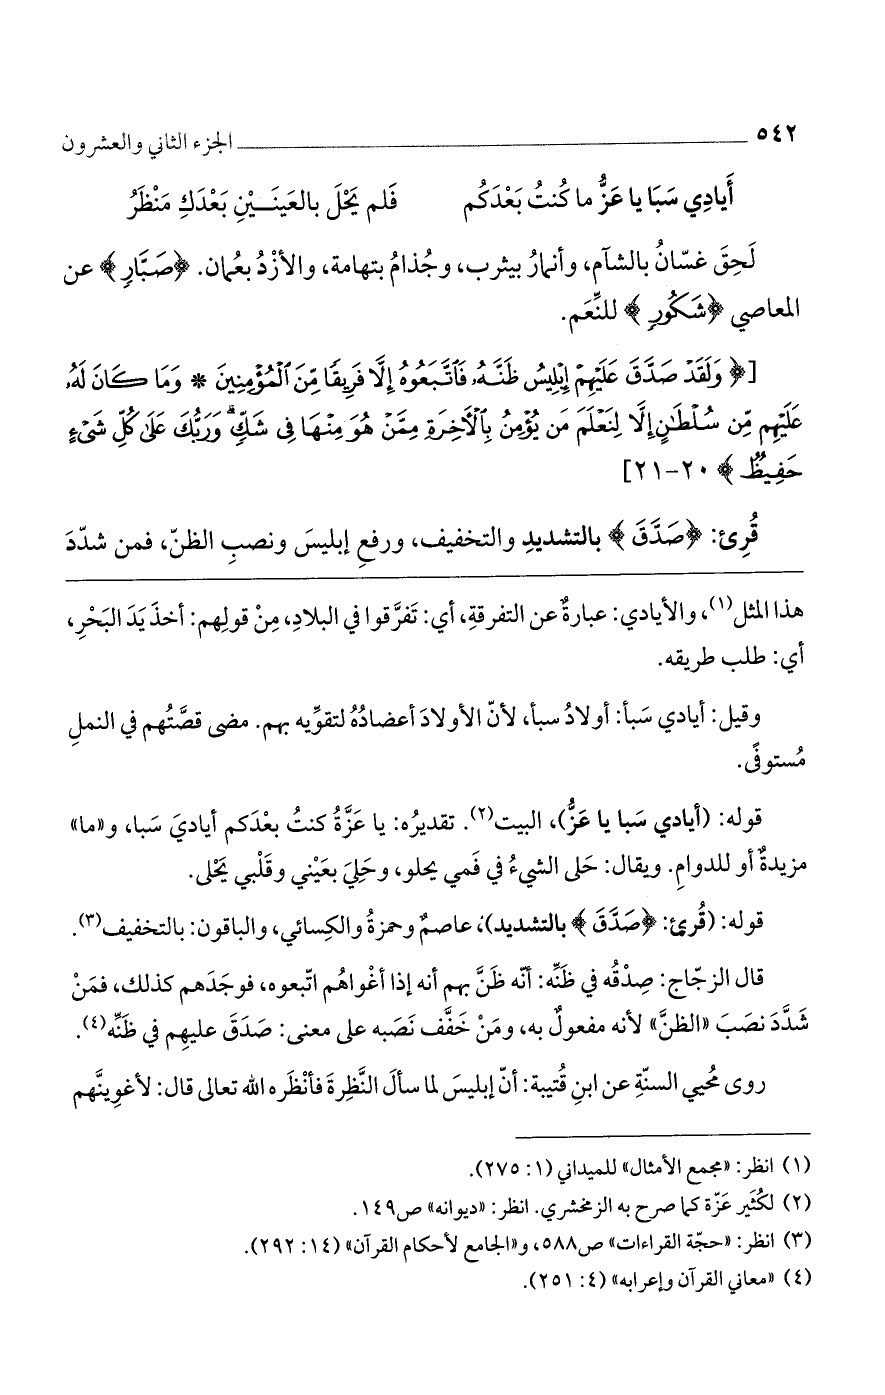 ٥٤٢ الجزء الثاني والعشرون
أَيادِي سَبَا يا عَزُّ ما كُنتُ بَعْدَكُم فَلم يَحْلَ بالعَينَـــيْنِ بَعْدَكِ مَنْظَرُ
لَحِقَ غسّانُ بالشآم، وأنمارُ بيثرب، وجُذامُ بتهامة، والأزْدُ بعُمان. ﴿صَبَّارٍ﴾ عن
المعاصي ﴿شَكُورٍ﴾ للنِّعَم.
[﴿وَلَقَدْ صَدَّقَ عَلَيْهِمْ إِبْلِيسُ ظَنَّهُۥ فَٱتَّبَعُوهُ إِلَّا فَرِيقًا مِّنَ ٱلْمُؤْمِنِينَ * وَمَا كَانَ لَهُۥ
عَلَيْهِم مِّن سُلْطَٰنٍ إِلَّا لِنَعْلَمَ مَن يُؤْمِنُ بِٱلْآخِرَةِ مِمَّنْ هُوَ مِنْهَا فِى شَكٍّ ۗ وَرَبُّكَ عَلَىٰ كُلِّ شَىْءٍ
حَفِيظٌ﴾ ٢٠-٢١]
قُرِئ: ﴿صَدَّقَ﴾ بالتشديدِ والتخفيف، ورفعِ إبليسَ ونصبِ الظنّ، فمن شدّدَ
هذا المثل(١)، والأيادي: عبارةٌ عن التفرقةِ، أي: تَفرَّقوا في البلادِ، مِنْ قولِهم: أخذَ يَدَ البَحْرِ،
أي: طلب طريقه.
وقيل: أيادي سَبأ: أولادُ سبأ، لأنّ الأولادَ أعضادُهُ لتقوِّيه بهم. مضى قصَّتُهم في النملِ
مُستوفًى.
قوله: (أيادي سَبا يا عَزُّ)، البيت(٢). تقديرُه: يا عَزَّةُ كنتُ بعْدَكم أياديَ سَبا، و«ما»
مزيدةٌ أو للدوامِ. ويقال: حَلى الشيءُ في فَمي يحلو، وحَلِيَ بعَيْني وقَلْبي يَحْلى.
قوله: (قُرئ: ﴿صَدَّقَ﴾ بالتشديد)، عاصمٌ وحمزةُ والكِسائي، والباقون: بالتخفيف(٣).
قال الزجاج: صِدْقُه في ظَنِّه: أنّه ظَنَّ بهم أنه إذا أغْواهُم اتّبعوه، فوجَدَهم كذلك، فمَنْ
شَدَّدَ نصَبَ «الظنَّ» لأنه مفعولٌ به، ومَنْ خَفَّف نَصَبه على معنى: صَدَقَ عليهِم في ظَنِّه(٤).
روى مُحيي السنّةِ عن ابنِ قُتيبة: أنّ إبليسَ لما سألَ النَّظِرةَ فأنْظَره الله تعالى قال: لأغوِينَّهم
(١) انظر: «مجمع الأمثال» للميداني (١: ٢٧٥).
(٢) لكُثَير عَزّة كما صرح به الزمخشري. انظر: «ديوانه» ص١٤٩.
(٣) انظر: «حجّة القراءات» ص٥٨٨، و«الجامع لأحكام القرآن» (١٤: ٢٩٢).
(٤) «معاني القرآن وإعرابه» (٤: ٢٥١).